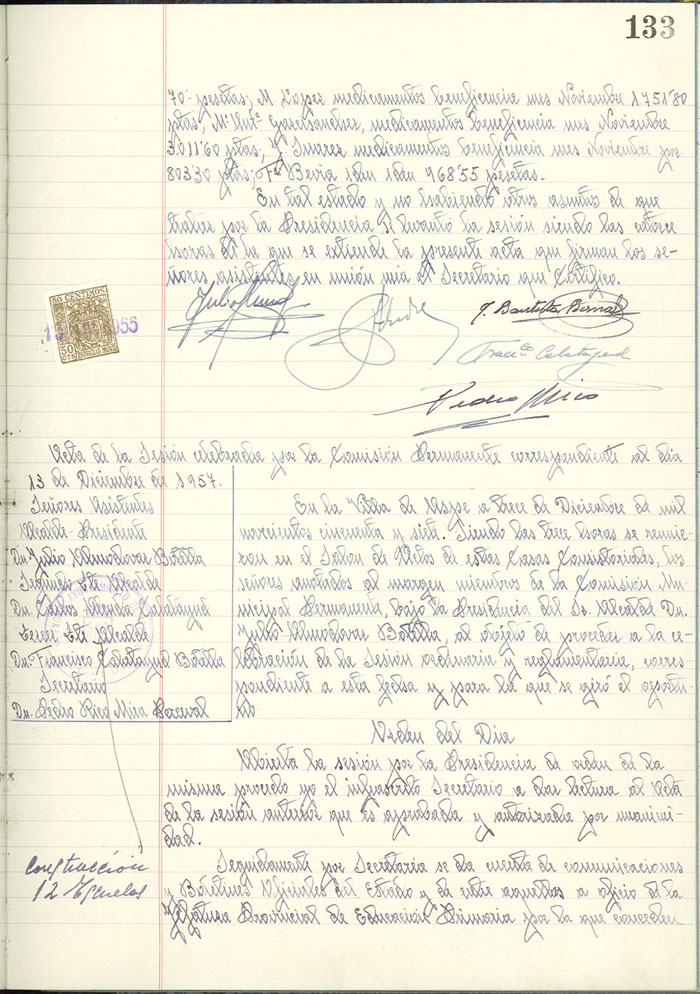 133
70 pesetas; M. Lopez medicamentos beneficencia mes Noviembre 1.751'80
ptas, Mª Antª Garcisanchez, medicamentos beneficencia mes Noviembre
3.011'60 ptas, Suarez medicamentos beneficencia mes Noviembre por
803'30 ptas; Bevia iden iden 968'55 pesetas.
En tal estado y no habiendo otros asuntos de que
tratar por la Presidencia se levantó la sesión siendo las catorce
horas de la que se extiende la presente acta que firman los se-
ñores asistentes en unión mia el Secretario que Certifico.
50 CENTIMOS
1955
50
J. Bautista Bernal
Francco Calatayud
Pedro Rico
Acta de la Sesión celebrada por la Comisión Permanente correspondiente al dia
13 de Diciembre de 1957.
Señores Asistentes
Alcalde-Presidente
Dn. Julio Almodovar Botella
Segundo Tte Alcalde
Dn. Carlos Calatayud
Tercer Tte Alcalde
Dn. Francisco Calatayud Botella
Secretario
Dn. Pedro Rico Mira Perceval
En la Villa de Aspe a trece de Diciembre de mil
novecientos cincuenta y siete. Siendo las trece horas se reunie-
ron en el Salon de Actos de estas Casas Consistoriales, los
señores anotados al margen miembros de la Comisión Mu-
nicipal Permanente, bajo la Presidencia del Sr. Alcalde Dn.
Julio Almodovar Botella, al objeto de proceder a la ce-
lebración de la Sesión ordinaria y reglamentaria, corres-
pondiente a esta fecha y para la que se giró el oportu-
no
Orden del Dia
Abierta la sesión por la Presidencia de orden de la
misma procedo yo el infrascrito Secretario a dar lectura al Acta
de la sesión anterior que es aprobada y autorizada por unanimi-
dad.
Construcción
12 Escuelas
Seguidamente por Secretaria se da cuenta de comunicaciones
y Boletines Oficiales del Estado y de entre aquellos a oficio de la
Jefatura Provincial de Educación Primaria por la que conceden